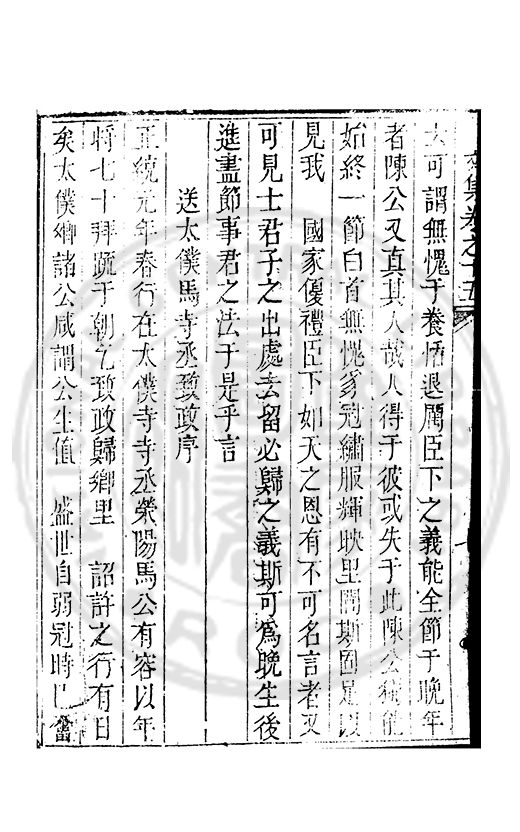 文集卷之十五
夫可謂無愧于養恬退厲臣下之義能全節于晚年
者陳公又真其人哉人得于彼或失于此陳公獨能
始終一節白首無愧豸冠繡服輝映里閭斯固足以
見我　國家優禮臣下如天之恩有不可名言者又
可見士君子之出處去留必歸之義斯可為晚生後
進盡節事君之法于是乎言
送太僕馬寺丞致政序
正統元年春行在太僕寺寺丞滎陽馬公有容以年
將七十拜疏于朝乞致政歸鄉里　詔許之行有日
矣太僕卿諸公咸謂公生值　盛世自弱冠時已嘗